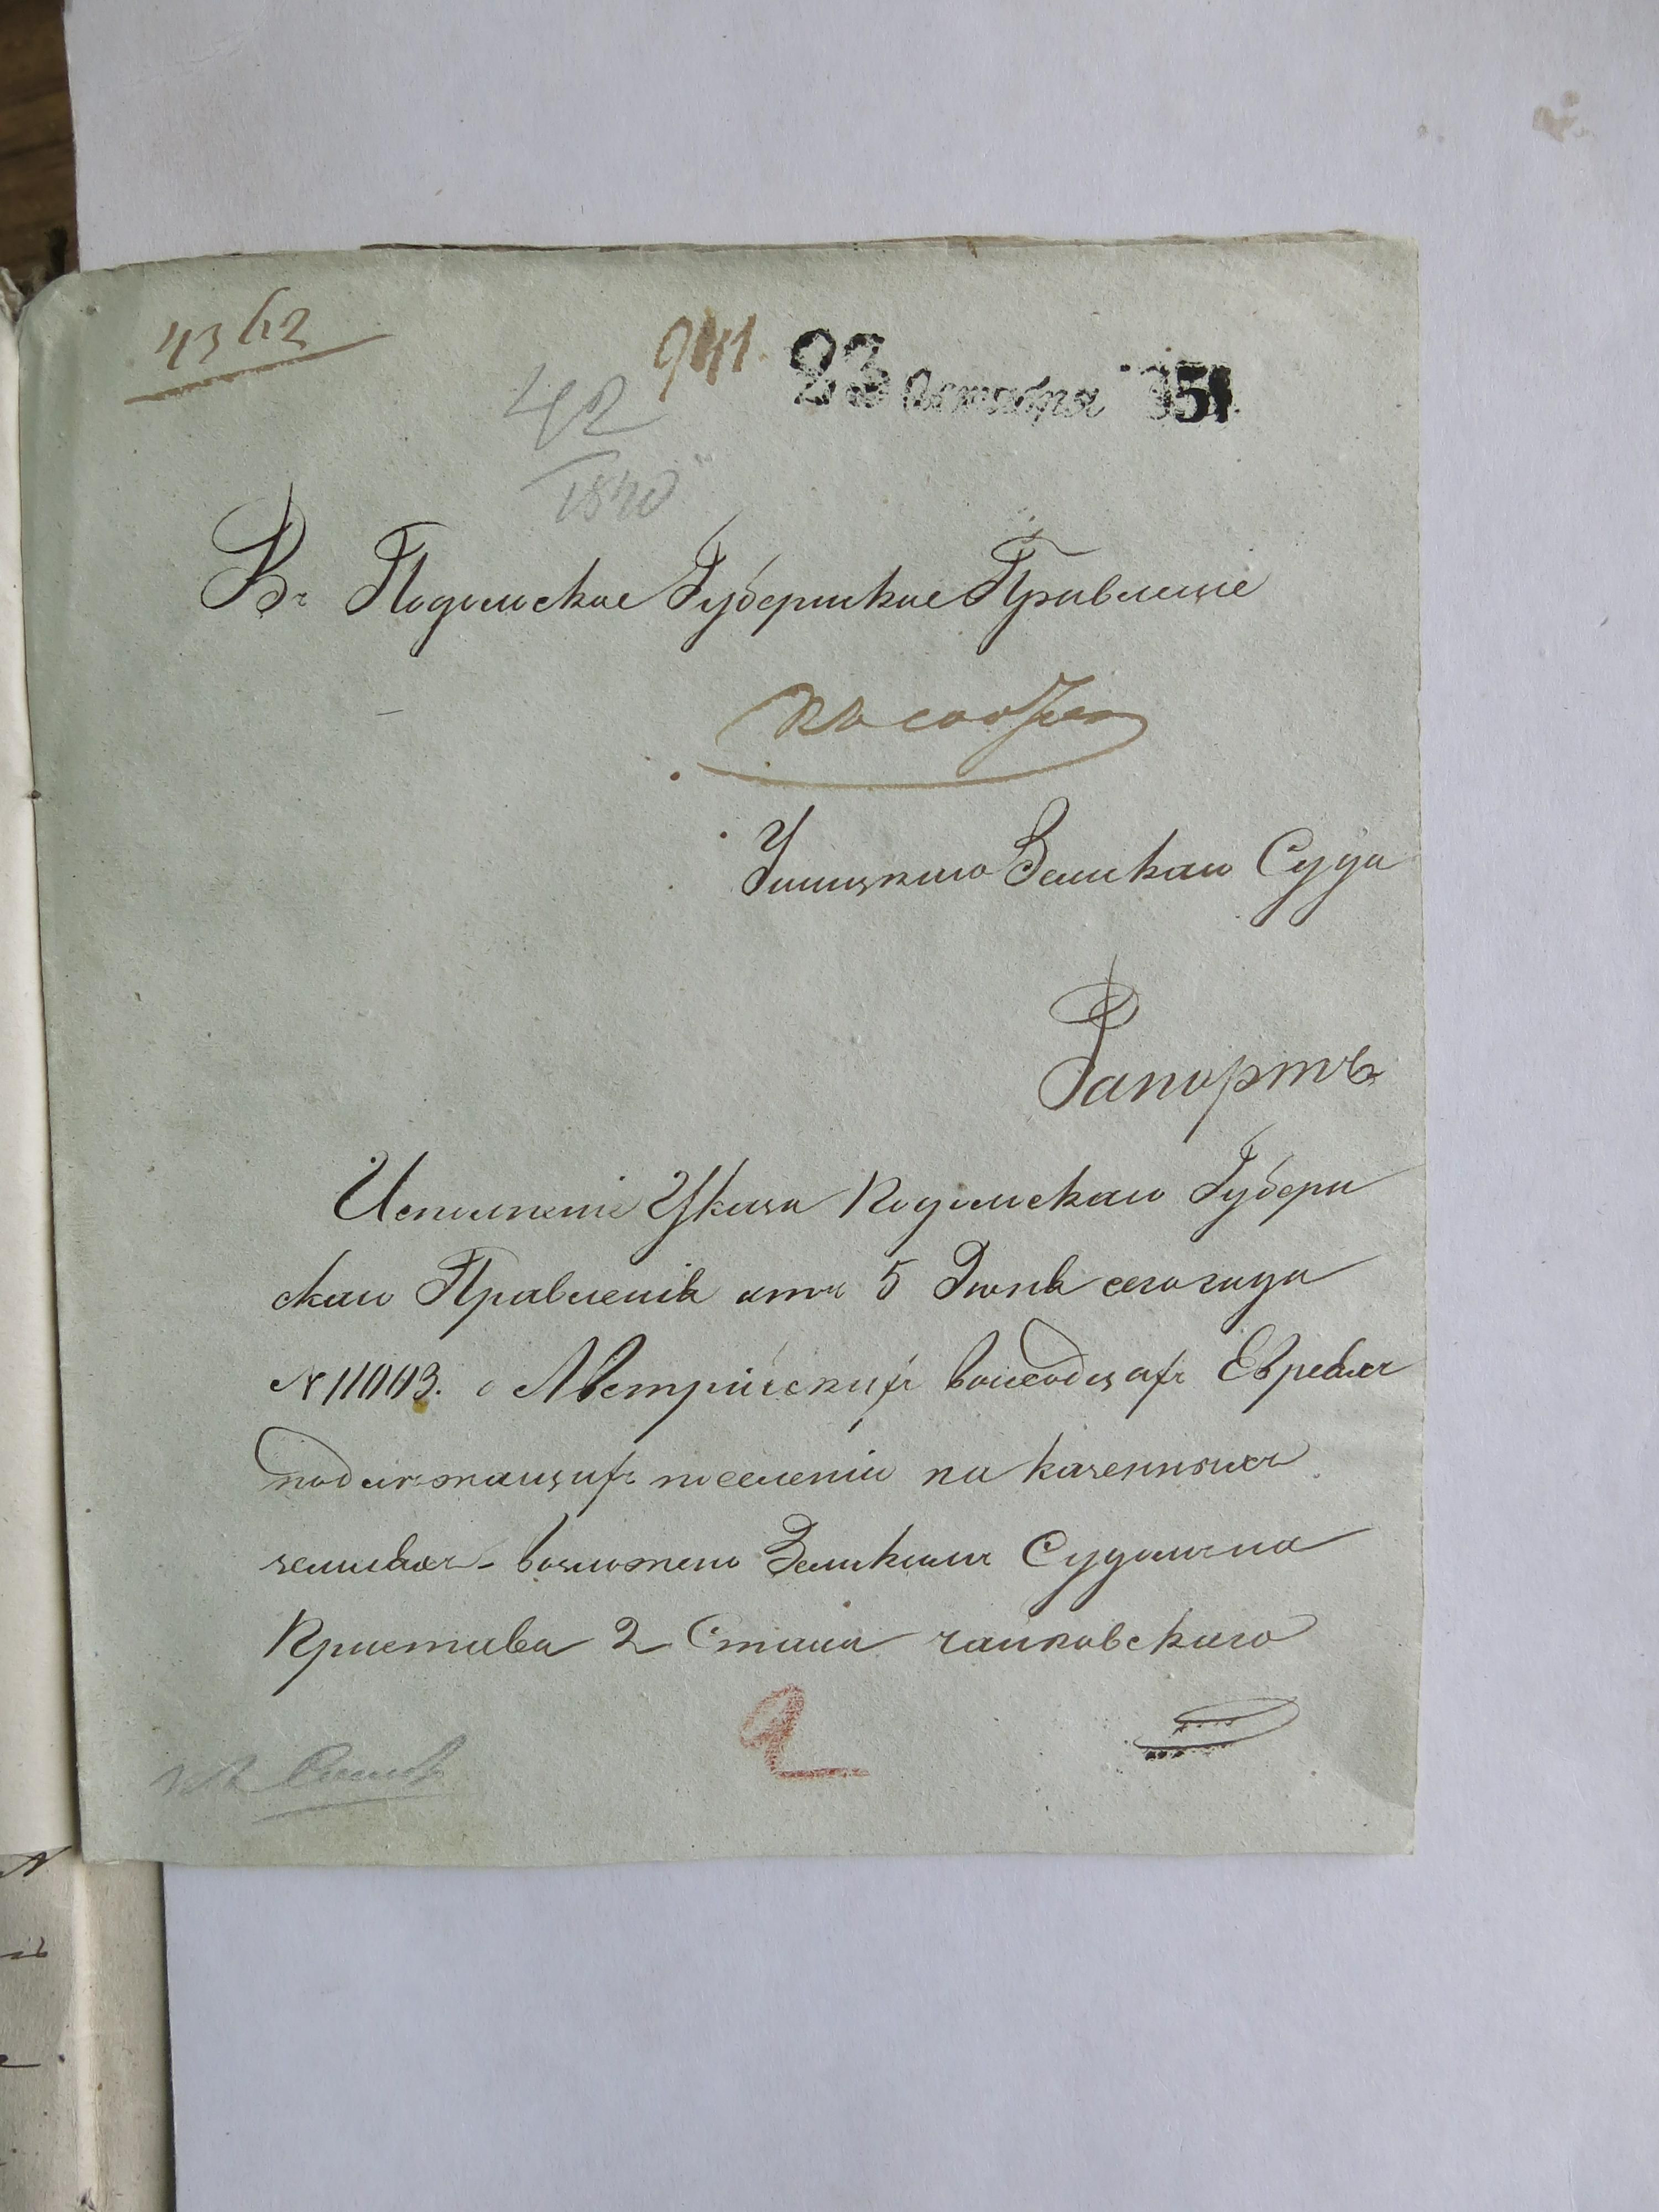 4362
941. 23 Октября 1851.
42
1840
Въ Подольское Губернское Правленіе
Ушицкаго Земскаго Суда
Рапортъ
Исполненіе Указа Подольскаго Губерн
скаго Правленія отъ 5 Іюня сего года
№ 11003. о Австрійскихъ выходцахъ Евреяхъ
подлежащихъ поселенію на казенныхъ
земляхъ - возложено Земскимъ Судомъ на
Пристава 2 Стана
2